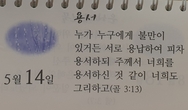 용서
누가 누구에게 불만이
있거든 서로 용납하여 피차
용서하되 주께서 너희를
용서하신 것 같이 너희도
그리하고(골 3:13)
5월 14일